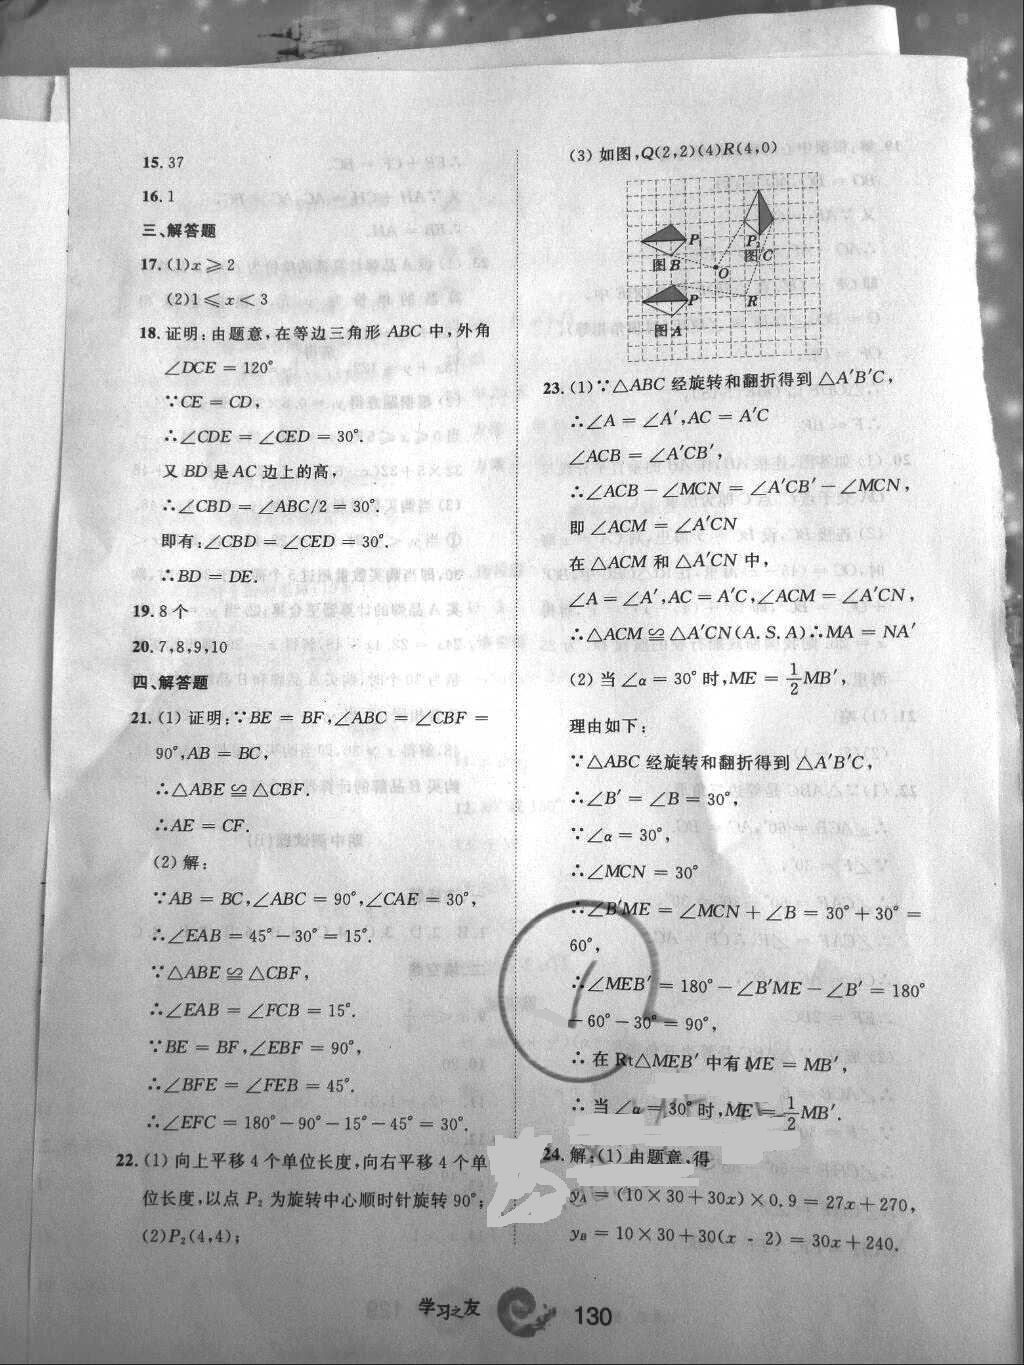 15. 37
16. 1
三、解答题
17. (1)x⩾2
(2)1⩽x<3
18. 证明:由题意,在等边三角形 ABC 中,外角
∠DCE = 120°
∵CE = CD,
∴∠CDE = ∠CED = 30°.
又 BD 是 AC 边上的高,
∴∠CBD = ∠ABC/2 = 30°.
即有:∠CBD = ∠CED = 30°.
∴BD = DE.
19. 8 个
20. 7,8,9,10
四、解答题
21. (1) 证明:∵BE = BF,∠ABC = ∠CBF =
90°,AB = BC,
∴△ABE ≌ △CBF.
∴AE = CF.
(2) 解:
∵AB = BC,∠ABC = 90°,∠CAE = 30°,
∴∠EAB = 45°-30° = 15°.
∵△ABE ≌ △CBF,
∴∠EAB = ∠FCB = 15°.
∵BE = BF,∠EBF = 90°,
∴∠BFE = ∠FEB = 45°.
∴∠EFC = 180°-90°-15°-45° = 30°.
22. (1) 向上平移 4 个单位长度,向右平移 4 个单
位长度,以点 P₂ 为旋转中心顺时针旋转 90°;
(2)P₂(4,4);
(3) 如图,Q(2,2)(4)R(4,0)
P₁
P₂
图B
图C
O
P
R
图A
23. (1)∵△ABC 经旋转和翻折得到 △A′B′C,
∴∠A = ∠A′,AC = A′C
∠ACB = ∠A′CB′,
∴∠ACB - ∠MCN = ∠A′CB′ - ∠MCN,
即 ∠ACM = ∠A′CN
在 △ACM 和 △A′CN 中,
∠A = ∠A′,AC = A′C,∠ACM = ∠A′CN,
∴△ACM ≌ △A′CN(A.S.A)∴MA = NA′
(2) 当 ∠α = 30° 时,ME = 1/2 MB′,
理由如下:
∵△ABC 经旋转和翻折得到 △A′B′C,
∴∠B′ = ∠B = 30°,
∵∠α = 30°,
∴∠MCN = 30°
∴∠B′ME = ∠MCN + ∠B = 30°+30° =
60°,
∴∠MEB′ = 180° - ∠B′ME - ∠B′ = 180°
-60°-30° = 90°,
∴ 在 Rt△MEB′ 中有 ME = MB′,
∴ 当 ∠α = 30° 时,ME = 1/2 MB′.
24. 解:(1) 由题意、得
y_A = (10×30+30x)×0.9 = 27x+270,
y_B = 10×30+30(x - 2) = 30x+240.
学习之友
130